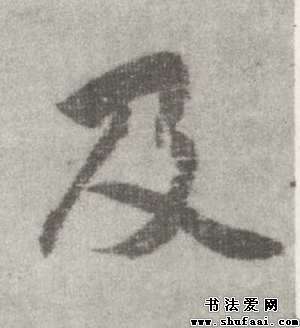 及
书法爱网
www.shufaai.com